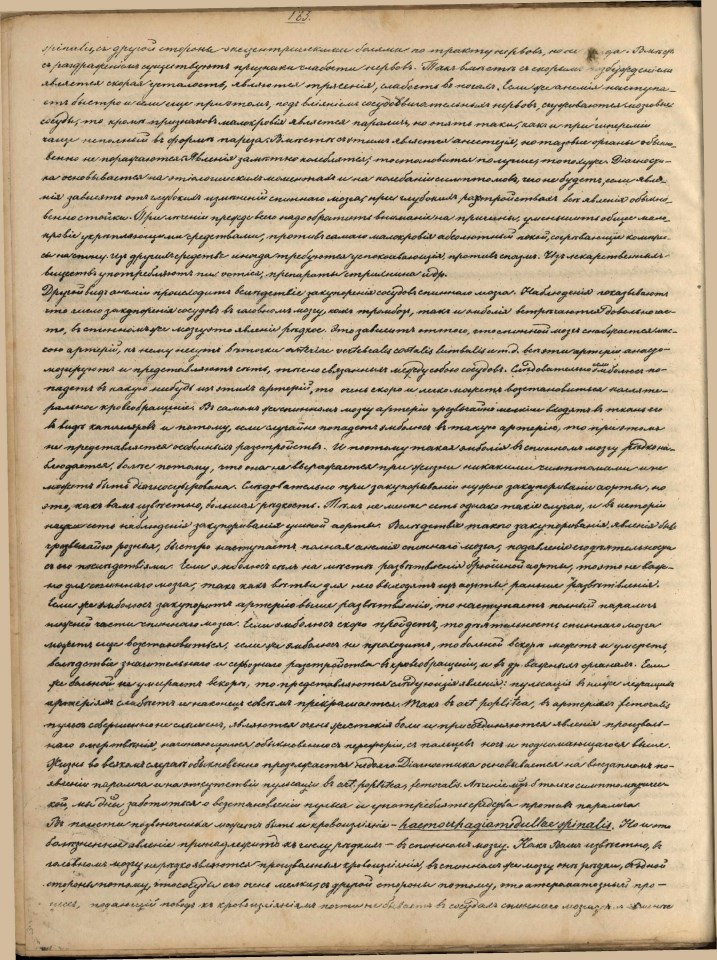 183.
spinalis, съ другой стороны эксцентрическими болями по тракту нервовъ, но
съ раздраженіемъ существуютъ признаки слабости нервовъ. Такъ вмѣстѣ съ скорымъ возбужденіемъ
является скорая усталость, являются трясенія, слабость въ ногахъ. Если же анемія наступа-
етъ быстро и если еще при этомъ, подъ вліяніемъ сосудодвигательныхъ нервовъ, суживаются мозговые
сосуды, то кромѣ признаковъ малокровія является параличъ, но опять таки, какъ и при гипереміи
чаще неполный въ формѣ пареза. Вмѣстѣ съ этимъ является анестезія, но тазовые органы обыкно-
венно не поражаются. Явленія замѣтно колеблются, то становится получше, то похуже. Діагности-
ка основывается на этіологическихъ моментахъ и на колебаніи симптомовъ, чего не будетъ, если явле-
нія зависятъ отъ глубокихъ измѣненій спиннаго мозга; при глубокихъ разстройствахъ всѣ явленія обыкно-
венно стойки. При леченіи прежде всего надо обратить вниманіе на причины, уменьшить общее мало-
кровіе укрѣпляющими средствами, противъ самаго малокровія абсолютный покой, согрѣвающіе компрес-
сы на спину. Изъ другихъ средствъ иногда требуются успокоивающія, противъ спазмъ. Изъ лекарственныхъ
веществъ употребляютъ nux vomica, препараты стрихнина и др.
Другой видъ анеміи происходитъ вслѣдствіе закупоренія сосудовъ спиннаго мозга. Наблюденія показываютъ
что число закупоренія сосудовъ въ головномъ мозгу, какъ тромбозъ, такъ и эмболія встрѣчаются довольно ча-
сто, въ спинномъ же мозгу это явленіе рѣдкое. Это зависитъ оттого, что спинной мозгъ снабжается мас-
сою артерій, къ нему несутъ вѣточки arteriae vertebralis costalis lumbalis и т.д. всѣ эти артеріи анасто-
мозируютъ и представляютъ сѣть, тѣсно связанныхъ между собою сосудовъ. Слѣдовательно если эмболюсъ по-
падетъ въ какую нибудь изъ этихъ артерій, то очень скоро и легко можетъ возстановиться коллате-
ральное кровообращеніе; Въ самомъ же спинномъ мозгу артеріи чрезвычайно мелкія входятъ въ ткань его
въ видѣ капилляровъ и потому, если случайно попадетъ эмболюсъ въ такую артерію, то при этомъ
не представляется особенныхъ разстройствъ. И поэтому такая эмболія въ спинномъ мозгу рѣдко на-
блюдается, болѣе потому, что она не выражается при жизни никакими симптомами и не
можетъ быть діагносцирована. Слѣдовательно при закупориваніи нужно закупориваніе аорты, но
это, какъ вамъ извѣстно, большая рѣдкость. Тѣмъ не менѣе есть однако такіе случаи, и въ исторіи
науки есть наблюденія закупориванія уличной аорты. Вслѣдствіе такого закупориванія, явленія быв.
чрезвычайно рознья, быстро наступаетъ полная анемія спиннаго мозга, подавленіе его дѣятельности
съ его послѣдствіями. Если эмболюсъ сѣлъ на мѣстѣ развѣтвленія брюшной аорты, то это не важ-
но для спиннаго мозга, такъ какъ вѣтви для него выходятъ изъ аорты раньше развѣтвленія.
Если же эмболюсъ закупоритъ артерію выше развѣтвленія, то наступаетъ полный параличъ
нижней части спиннаго мозга. Если эмболюсъ скоро пройдетъ, то дѣятельность спиннаго мозга
можетъ еще возстановиться, если же эмболюсъ не проходитъ, то больной вскорѣ можетъ и умереть,
вслѣдствіе значительнаго и серьознаго разстройства въ кровообращеніи и въ др. важныхъ органахъ. Если
же больной не умираетъ вскорѣ, то представляются слѣдующія явленія: пульсація въ ниже лежащихъ
артеріяхъ слабѣетъ и наконецъ совсѣмъ прекращается. Такъ въ art. poplitea, въ артеріяхъ femoralis
пульсъ совершенно не слышенъ, являются очень жестокія боли и присоединяются явленія произволь-
наго омертвѣнія, начинающагося обыкновенно съ периферіи, съ пальцевъ ногъ и поднимающагося выше.
Жизнь во всякомъ случаѣ обыкновенно продолжается недолго. Діагностика основывается на внезапномъ по-
явленіи паралича и на отсутствіи пульсаціи въ art. poplitea, femoralis. Леченіе можетъ б. только симптоматичес-
кой, мы д. заботиться о возстановленіи пульса и употреблять средства противъ паралича
Въ полости позвоночника можетъ быть и кровоизліяніе – haemorrhagia medullae spinalis. Но и это
болѣзненное явленіе принадлежитъ къ числу рѣдкихъ – въ спинномъ мозгу. Какъ вамъ извѣстно, въ
головномъ мозгу нерѣдко являются произвольныя кровоизліянія, въ спинномъ же мозгу они рѣдки, съ одной
стороны потому, что сосуды его очень мелки, съ другой стороны потому, что атероматозный про-
цессъ, подающій поводъ къ кровоизліяніямъ почти не бываетъ въ сосудахъ спиннаго мозга;